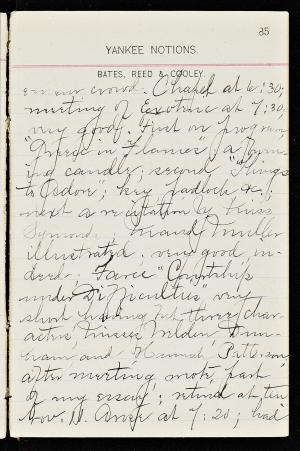 85
YANKEE NOTIONS.
BATES, REED & COOLEY.
crowd. Chapel at 6:30;
meeting of at 7:30,
very good. First on program,
"Greece in Flames", a burn-
ing candle; second "Things
to Adore"; key padlock &c.;
next a recitation by Miss
Symonds; Maud Muller
illustrated, very good in-
deed; Farce "Courtship
under Difficulties", very
short having but three char-
acters, Misses Weldon, Dun-
ham and Hannah Patterson,
after meeting wrote part
of my essay; retired at ten
Nov. 11. Arose at 7:20; had